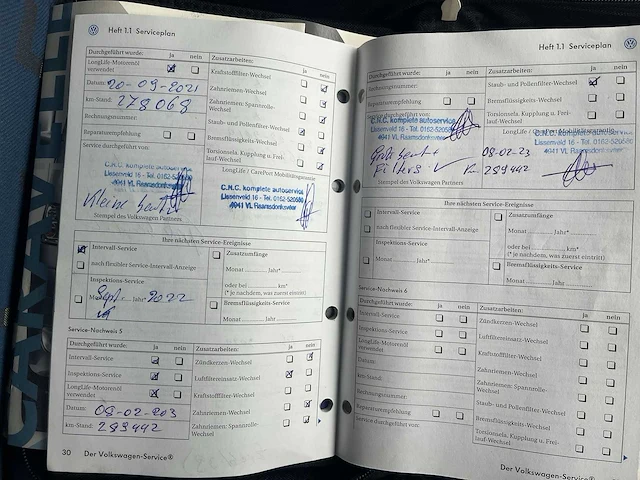 Heft 1.1 Serviceplan
Durchgeführt wurde: ja nein
LongLife-Motorenöl
verwendet
Datum: 20-09-2021
km-Stand: 278068
Rechnungsnummer:
Reparaturempfehlung
Service durchgeführt von:
C.N.C. komplete autoservice
Lissenveld 16 - Tel. 0162-520580
4941 VL Raamsdonksveer
Kleine beurt
Stempel des Volkswagen Partners
Zusatzarbeiten: ja nein
Kraftstofffilter-Wechsel
Zahnriemen-Wechsel
Zahnriemen: Spannrolle-
Wechsel
Staub- und Pollenfilter-Wechsel
Bremsflüssigkeits-Wechsel
Torsionsela. Kupplung u. Frei-
lauf-Wechsel
LongLife / CarePort Mobilitätsgarantie
C.N.C. komplete autoservice
Lissenveld 16 - Tel. 0162-520580
4941 VL Raamsdonksveer
Ihre nächsten Service-Ereignisse
Intervall-Service
nach flexibler Service-Intervall-Anzeige
Inspektions-Service
Sept. Jahr 2022
Zusatzumfänge
Monat Jahr*
oder bei km*
(* je nachdem, was zuerst eintritt)
Bremsflüssigkeits-Service
Monat Jahr
Service-Nachweis 5
Durchgeführt wurde: ja nein
Intervall-Service
Inspektions-Service
LongLife-Motorenöl
verwendet
Datum: 08-02-203
km-Stand: 289442
Zusatzarbeiten: ja nein
Zündkerzen-Wechsel
Luftfiltereinsatz-Wechsel
Kraftstofffilter-Wechsel
Zahnriemen-Wechsel
Zahnriemen: Spannrolle-
Wechsel
30 Der Volkswagen-Service®
Heft 1.1 Serviceplan
Durchgeführt wurde: ja nein
Rechnungsnummer:
Reparaturempfehlung
Service durchgeführt von:
C.N.C. komplete autoservice
Lissenveld 16 - Tel. 0162-520580
4941 VL Raamsdonksveer
Grote beurt 08-02-23
Filters Km 289442
Stempel des Volkswagen Partners
Zusatzarbeiten: ja nein
Staub- und Pollenfilter-Wechsel
Bremsflüssigkeits-Wechsel
Torsionsela. Kupplung u. Frei-
lauf-Wechsel
C.N.C. komplete autoservice
Lissenveld 16 - Tel. 0162-520580
4941 VL Raamsdonksveer
Ihre nächsten Service-Ereignisse
Intervall-Service
nach flexibler Service-Intervall-Anzeige
Inspektions-Service
Monat Jahr
Zusatzumfänge
Monat Jahr*
oder bei km*
(* je nachdem, was zuerst eintritt)
Bremsflüssigkeits-Service
Monat Jahr
Service-Nachweis 6
Durchgeführt wurde: ja nein
Intervall-Service
Inspektions-Service
LongLife-Motorenöl
verwendet
Datum:
km-Stand:
Rechnungsnummer:
Reparaturempfehlung
Service durchgeführt von:
Zusatzarbeiten: ja nein
Zündkerzen-Wechsel
Luftfiltereinsatz-Wechsel
Kraftstofffilter-Wechsel
Zahnriemen-Wechsel
Zahnriemen: Spannrolle-
Wechsel
Staub- und Pollenfilter-Wechsel
Bremsflüssigkeits-Wechsel
Torsionsela. Kupplung u. Frei-
lauf-Wechsel
Der Volkswagen-Service®